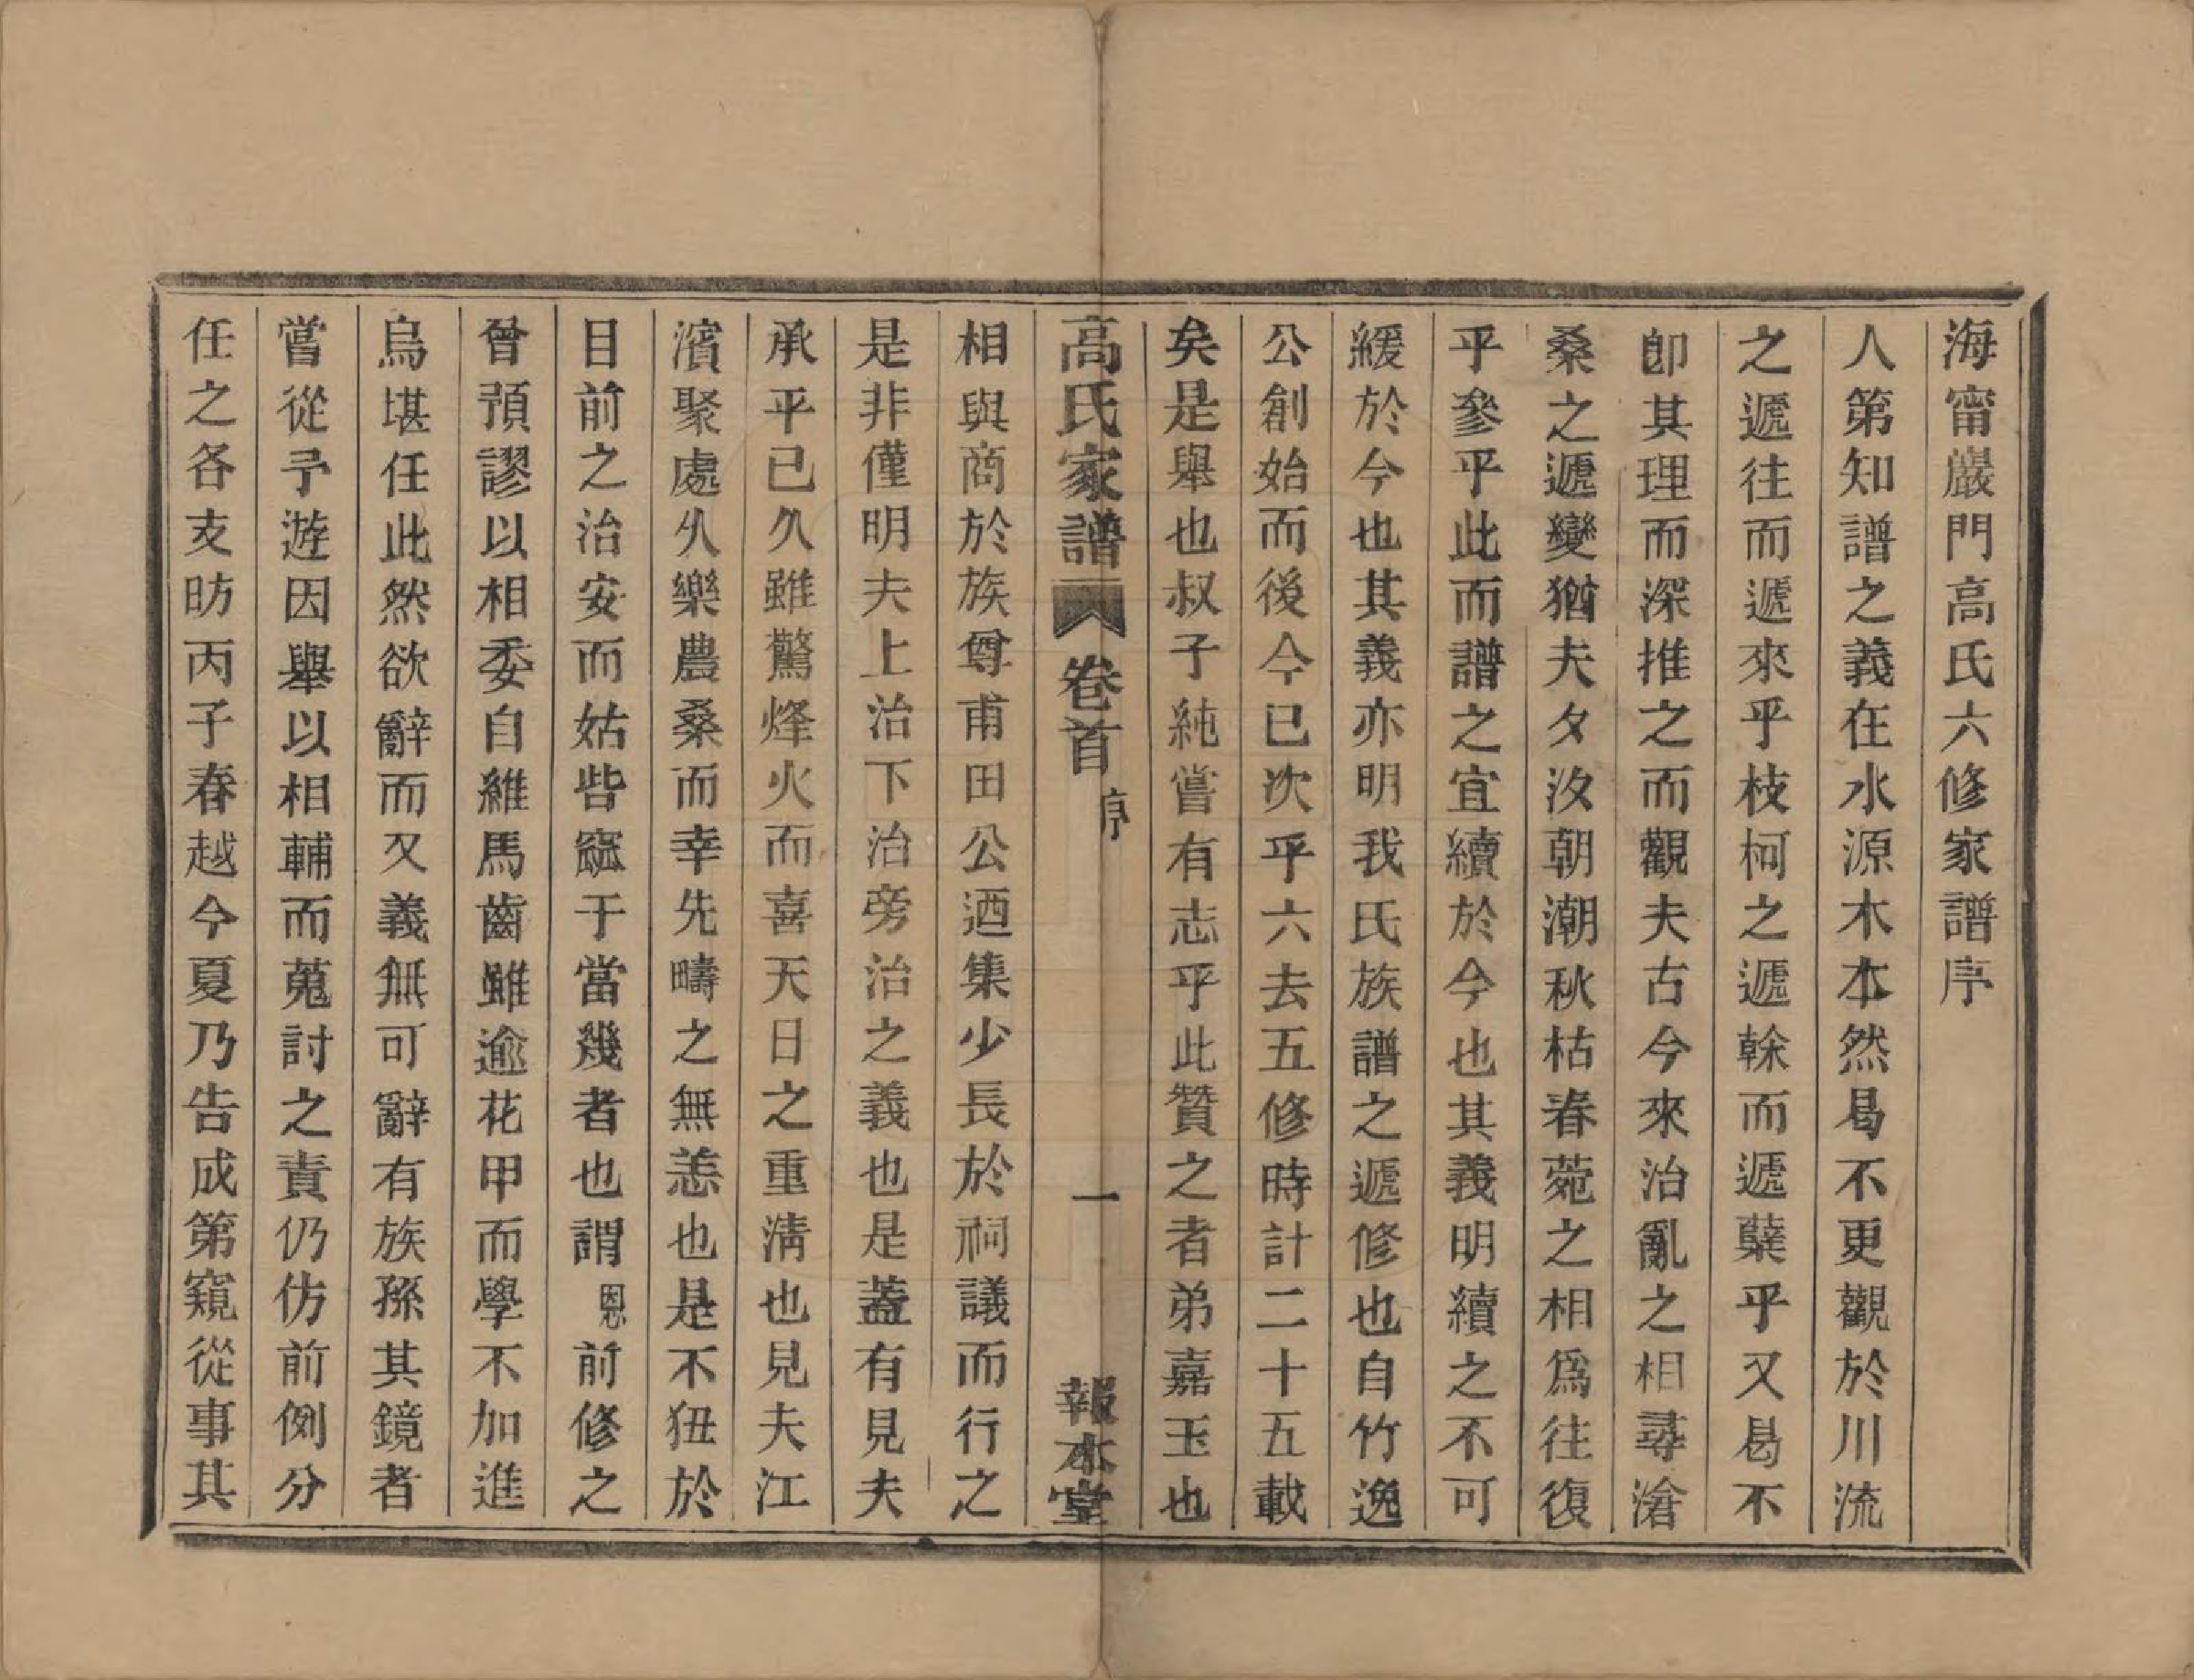 海甯巖門高氏六修家譜序
人第知譜之義在水源木本然曷不更觀於川流
之遞往而遞來乎枝柯之遞榦而遞蘖乎又曷不
卽其理而深推之而觀夫古今來治亂之相尋滄
桑之遞變猶夫夕汐朝潮秋枯春菀之相爲往復
乎參乎此而譜之宜續於今也其義明續之不可
緩於今也其義亦明我氏族譜之遞修也自竹逸
公創始而後今已次乎六去五修時計二十五載
矣是舉也叔子純嘗有志乎此贊之者弟嘉玉也
高氏家譜 卷首 序 一 報本堂
相與商於族尊甫田公迺集少長於祠議而行之
是非僅明夫上治下治旁治之義也是蓋有見夫
承平已久雖驚烽火而喜天日之重淸也見夫江
濱聚處久樂農桑而幸先疇之無恙也是不狃於
目前之治安而姑呰窳于當幾者也謂恩前修之
曾預謬以相委自維馬齒雖逾花甲而學不加進
烏堪任此然欲辭而又義無可辭有族孫其鏡者
嘗從予遊因舉以相輔而蒐討之責仍仿前例分
任之各支昉丙子春越今夏乃告成第窺從事其